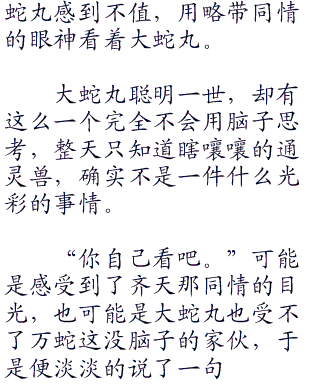 蛇丸感到不值，用略带同情
的眼神看着大蛇丸。
大蛇丸聪明一世，却有
这么一个完全不会用脑子思
考，整天只知道瞎嚷嚷的通
灵兽，确实不是一件什么光
彩的事情。
“你自己看吧。”可能
是感受到了齐天那同情的目
光，也可能是大蛇丸也受不
了万蛇这没脑子的家伙，于
是便淡淡的说了一句